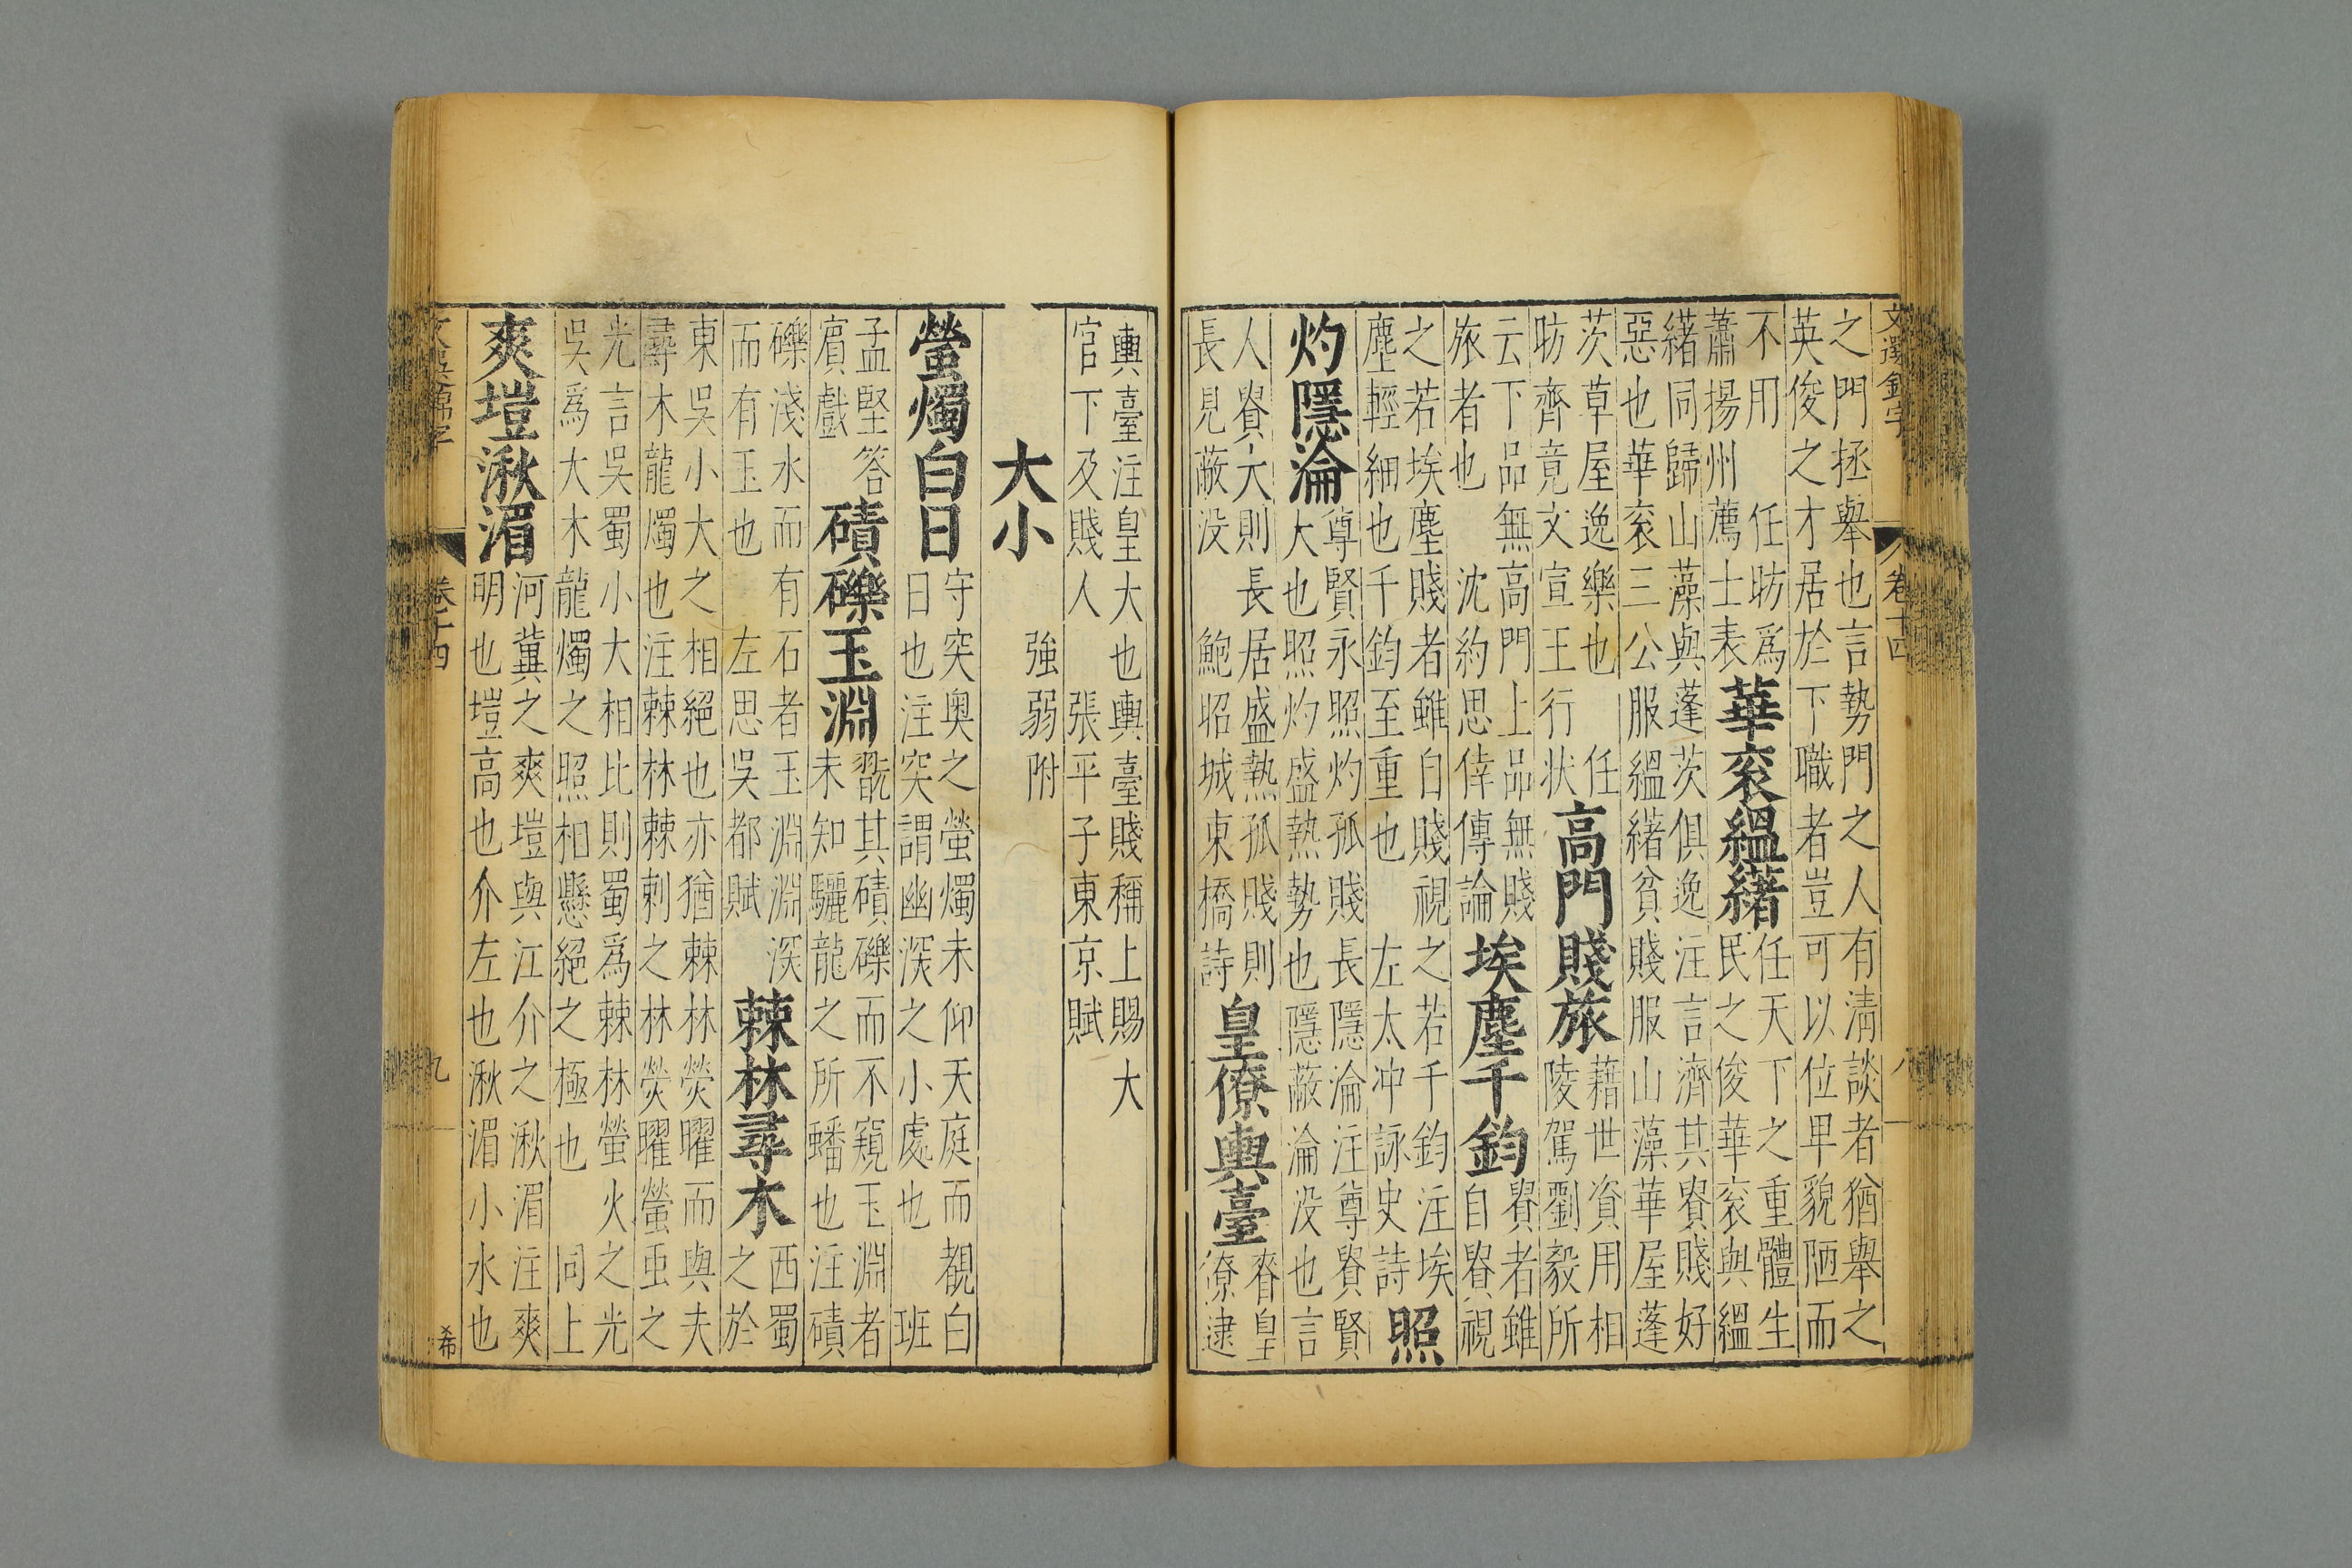 文選錦字 卷十四 八
之門拯舉也言勢門之人有清談者猶舉之
英俊之才居於下職者豈可以位卑貌陋而
不用 任昉爲
蕭揚州薦士表
華衮緼緒
任天下之重體生
民之俊華衮與緼
緒同歸山藻與蓬茨俱逸注言濟其貴賤好
惡也華衮三公服緼緒貧賤服山藻華屋蓬
茨草屋逸樂也 任
昉齊竟文宣王行状
高門賤旅
藉世資用相
陵駕劉毅所
云下品無高門上品無賤
旅者也 沈約思倖傳論
埃塵千鈞
貴者雖
自貴視
之若埃塵賤者雖自賤視之若千鈞注埃
塵輕細也千鈞至重也 左太冲詠史詩
照
灼隱淪
尊賢永照灼孤賤長隱淪注尊貴賢
大也照灼盛熱勢也隱蔽淪没也言
人貴大則長居盛熱孤賤則
長見蔽没 鮑昭城東橋詩
皇僚輿臺
眷皇
僚逮
輿臺注皇大也輿臺賤稱上賜大
官下及賤人 張平子東京賦
大小 強弱附
螢燭白日
守突奥之螢燭未仰天庭而覩白
日也注突謂幽深之小處也 班
孟堅答
賓戲
磧礫玉淵
翫其磧礫而不窺玉淵者
未知驪龍之所蟠也注磧
礫淺水而有石者玉淵淵深
而有玉也 左思吳都賦
棘林尋木
西蜀
之於
東吳小大之相絕也亦猶棘林熒曜而與夫
尋木龍燭也注棘林棘刺之林熒曜螢䖝之
光言吳蜀小大相比則蜀爲棘林螢火之光
吳爲大木龍燭之照相懸絕之極也 同上
爽塏湫湄
河冀之爽塏與江介之湫湄注爽
明也塏高也介左也湫湄小水也
文選錦字 卷十四 九 希